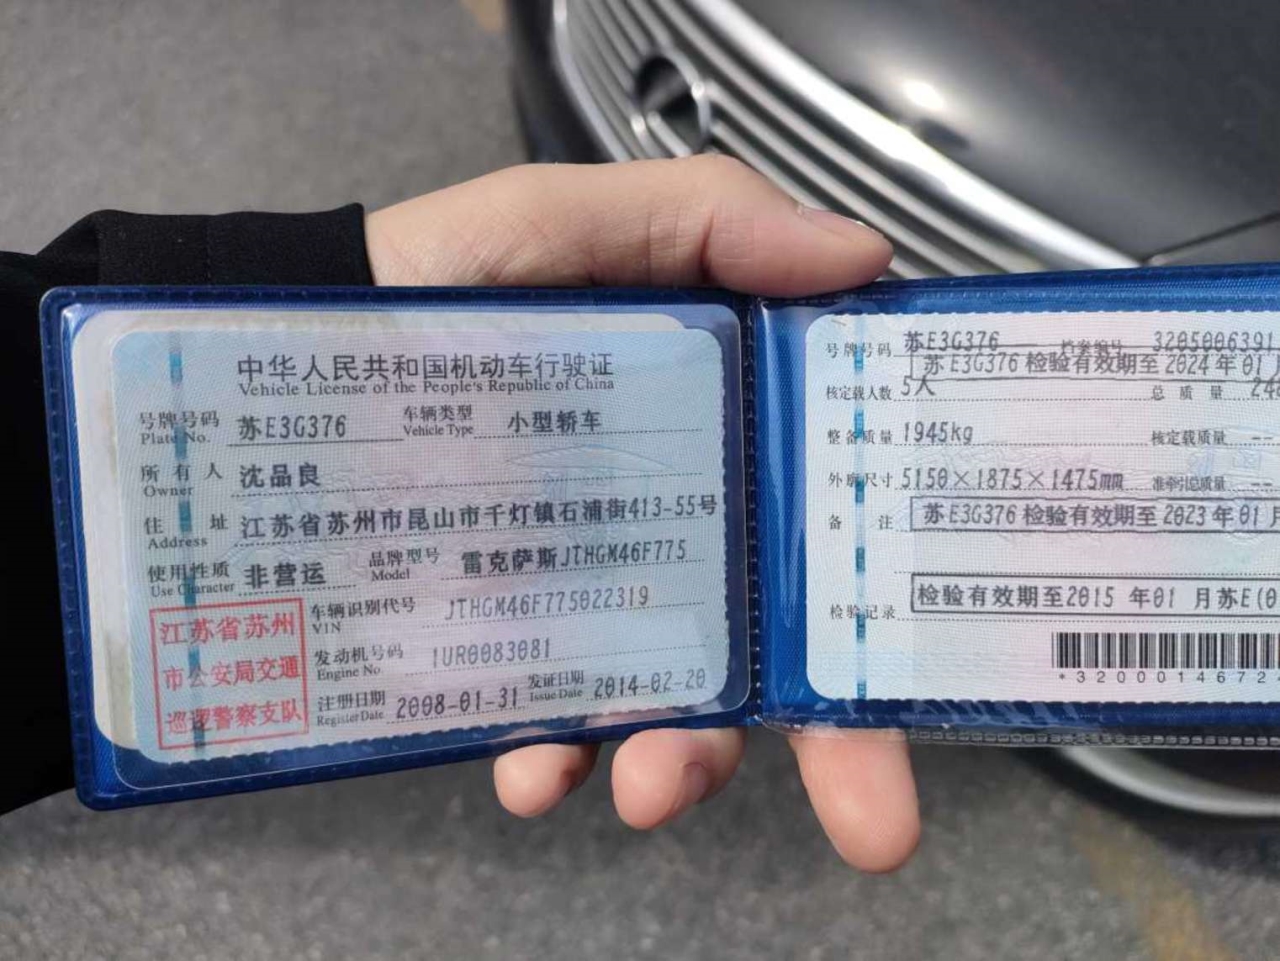 中华人民共和国机动车行驶证
Vehicle License of the People's Republic of China
号牌号码 苏E3G376 车辆类型 小型轿车
Plate No. Vehicle Type
所有人 沈品良
Owner
住址 江苏省苏州市昆山市千灯镇石浦街413-55号
Address
使用性质 非营运 品牌型号 雷克萨斯JTHGM46F775
Use Character Model
车辆识别代号 JTHGM46F775022319
VIN
发动机号码 1UR0083081
Engine No.
注册日期 2008-01-31 发证日期 2014-02-20
Register Date Issue Date
江苏省苏州
市公安局交通
巡逻警察支队
号牌号码 苏E3G376 档案编号 3205006391
苏E3G376 检验有效期至 2024 年 01 月
核定载人数 5人 总质量
整备质量 1945kg 核定载质量 --
外廓尺寸 5150×1875×1475mm 准牵引总质量 --
备注 苏E3G376 检验有效期至 2023 年 01 月
检验有效期至2015 年01 月苏E(0
检验记录
*32000146724